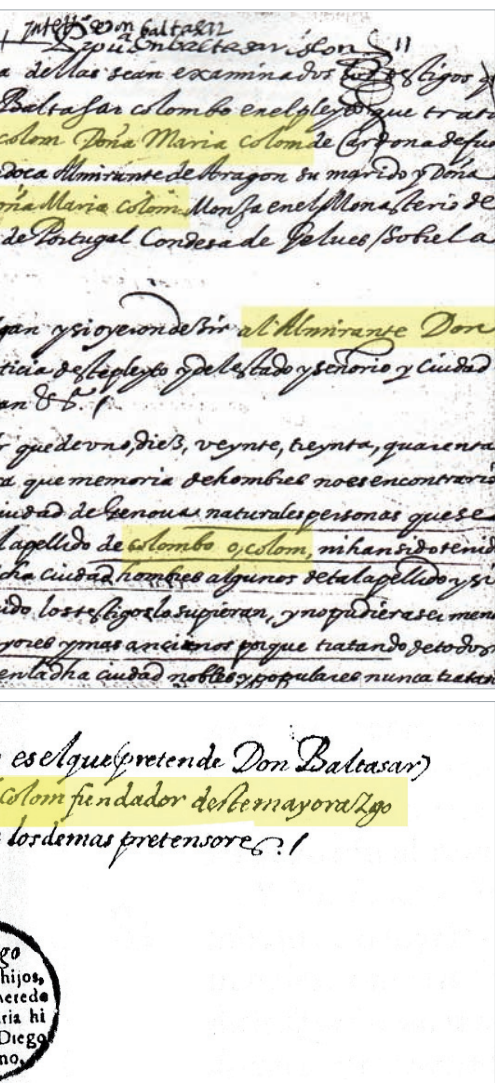 Don baltasar
a dellas sean examinados los testigos q
Baltasar colombo en el pleyto que trata
colom Doña Maria colom de Cardona defun
doca Almirante de Aragon su marido y Doña
oña Maria Colom Monja en el Monasterio de
de Portugal Condesa de Gelues / Sobre la
gan y si oyeron dezir al Almirante Don
ticia deste pleyto y del estado y señorio y ciudad
an &c. /
r que de vno, diez, veynte, treynta, quarenta
a que memoria de hombres no es en contrario
iudad de Genoua naturales personas que se
l apellido de colombo o, colom, ni han sido tenid
cha ciudad hombres algunos de tal apellido y si
ido los testigos lo supieran, y no pudiera ser men
yores y mas ancianos porque tratando de todos
en la dha ciudad nobles y populares nunca tratan
es el que (pretende Don Baltasar)
colom fundador deste mayorazgo
los demas pretensores. /
go
hijos,
herede
ria hi
Diego
no,